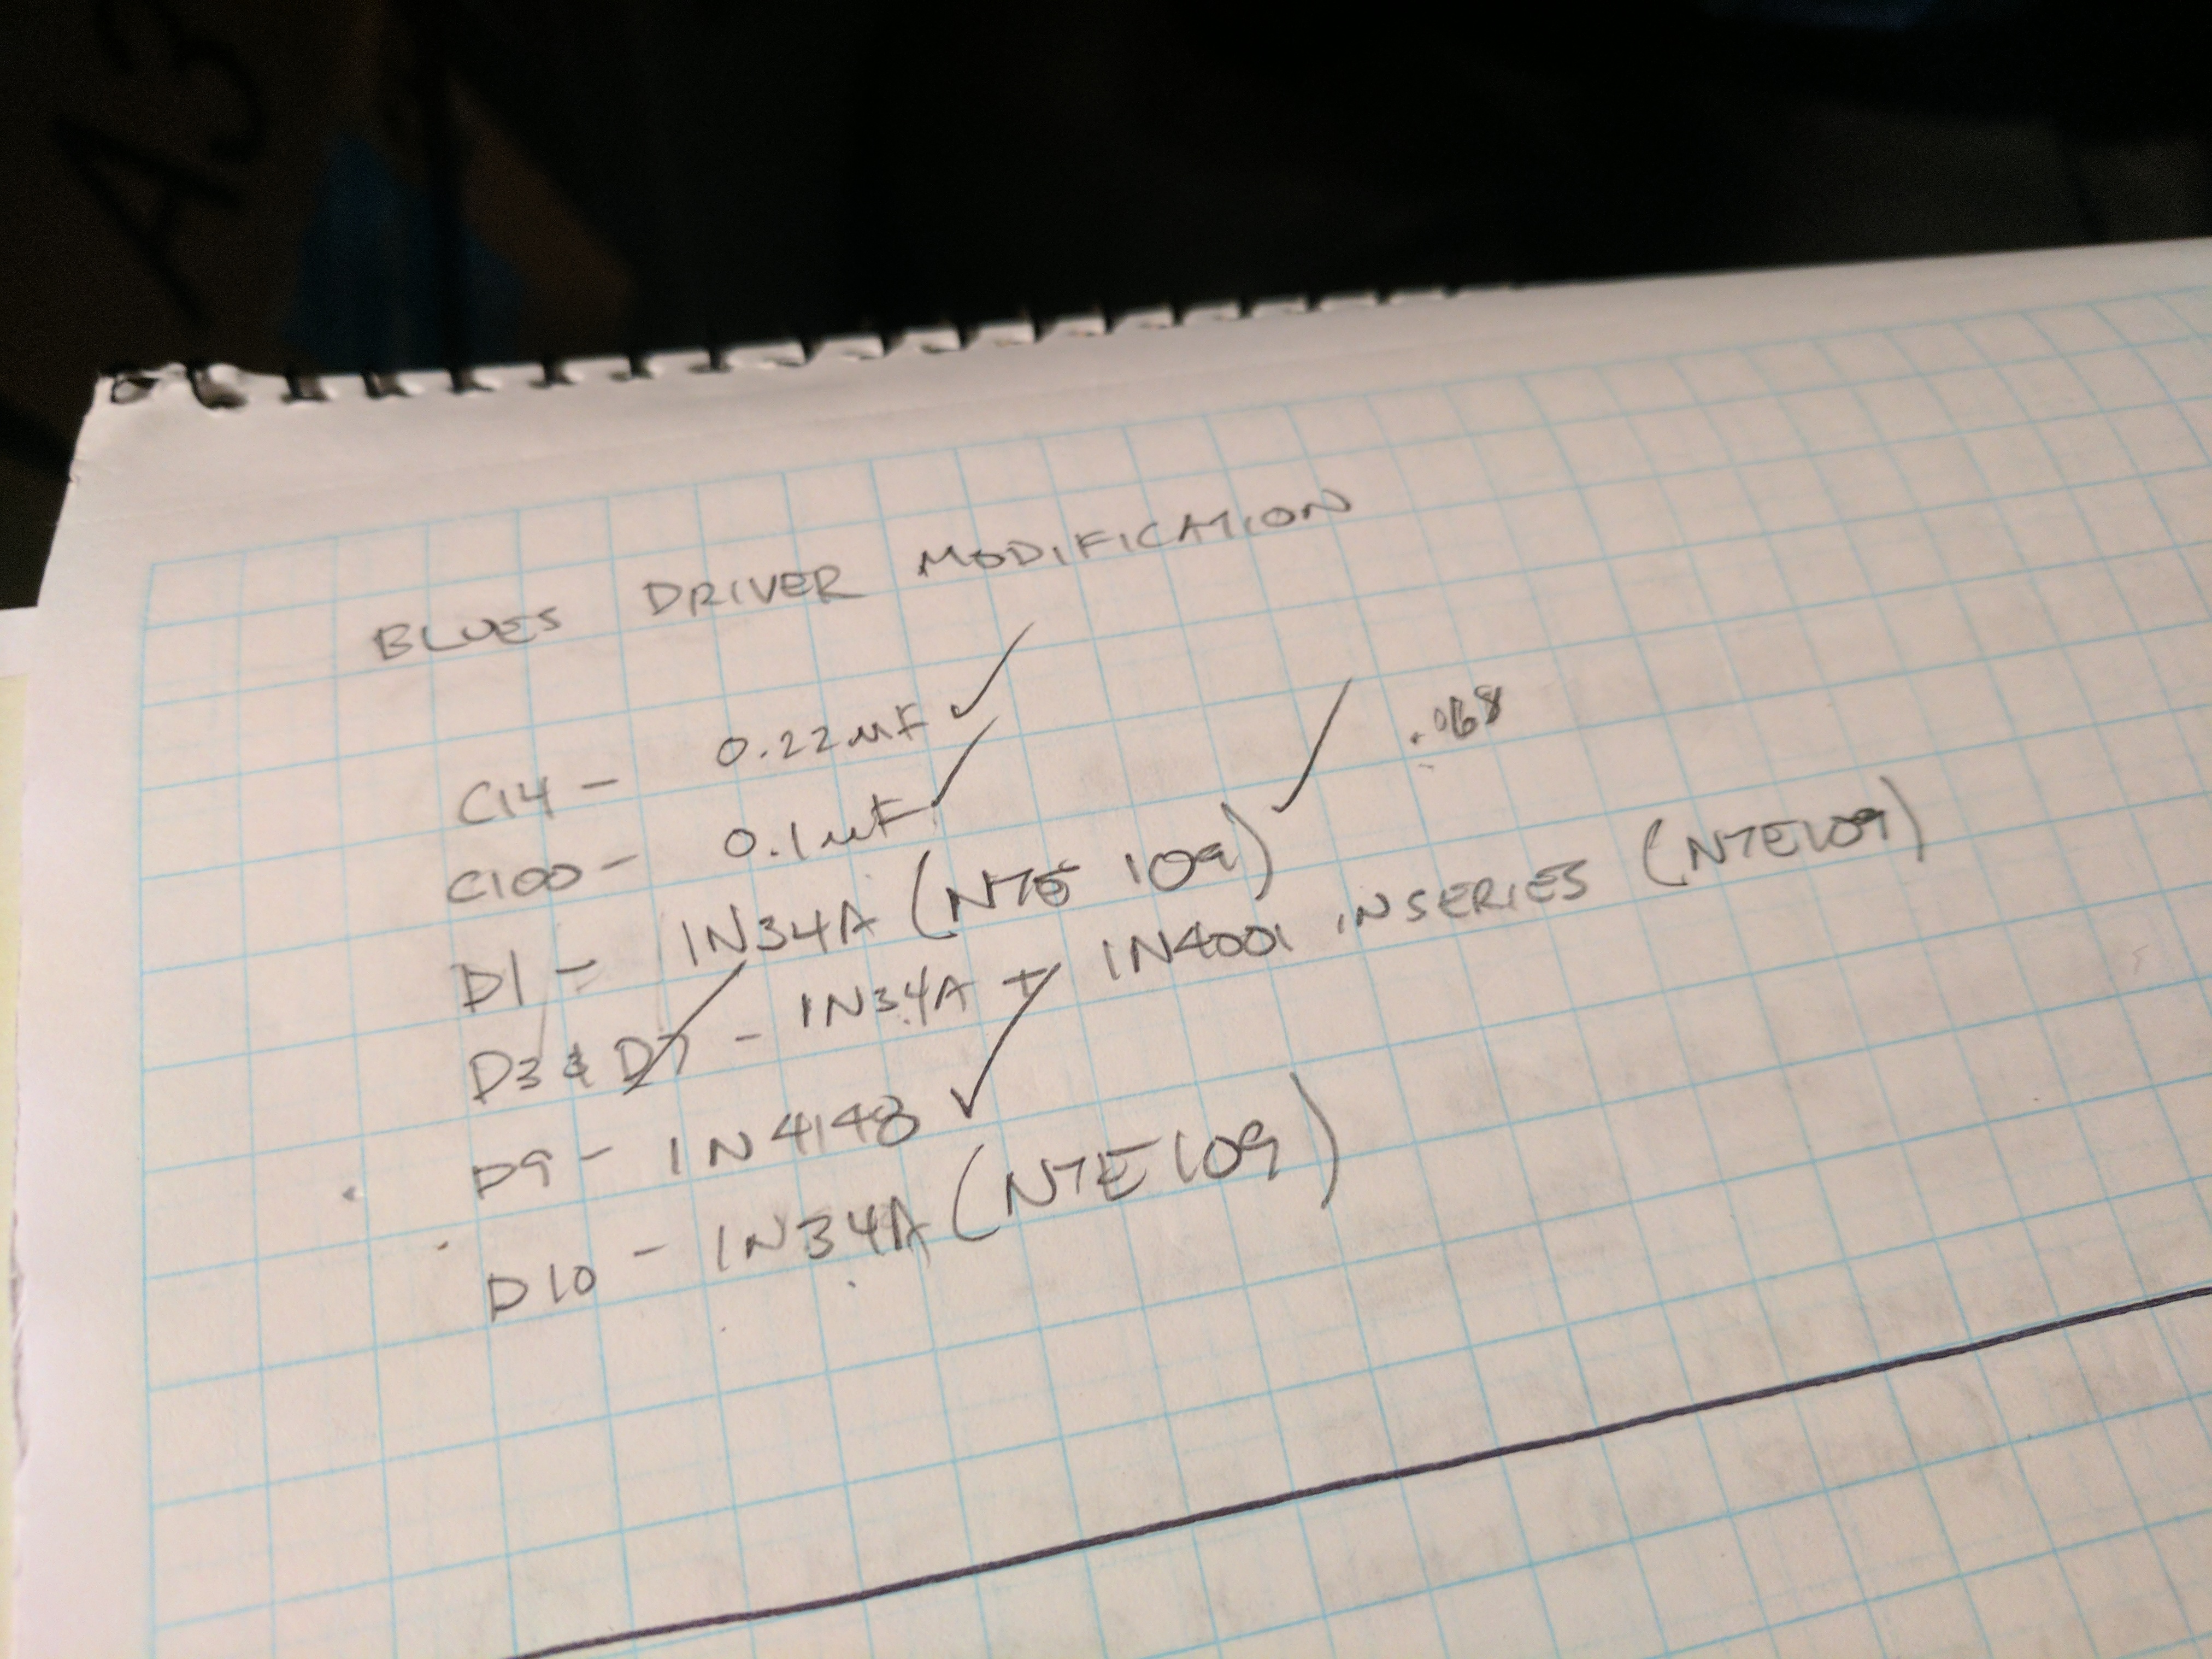 BLUES DRIVER MODIFICATION
C14 - 0.22µF ✓
C100 - 0.1µF ✓
.068
D1 - 1N34A (NTE 109) ✓
D3 & D7 - 1N34A + 1N4001 IN SERIES (NTE109)
D9 - 1N4148 ✓
D10 - 1N34A (NTE109)